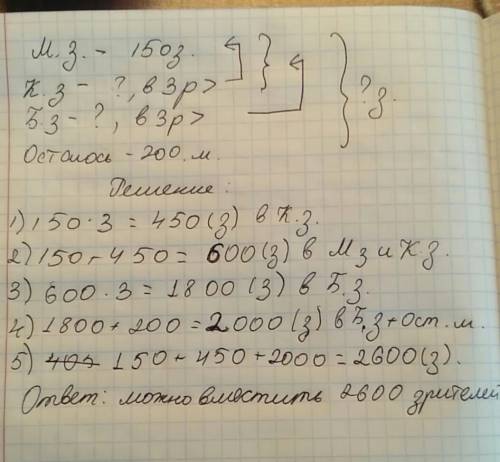 М.з. - 150з.
К.з - ?, в 3р>
Б.з - ?, в 3р>
?з.
Осталось - 200 м.
Решение:
1) 150·3 = 450 (з) в К.з.
2) 150+450 = 600 (з) в Мз и К.з.
3) 600·3 = 1800 (з) в Б.з.
4) 1800+200 = 2000 (з) в Б.з + Ост. м.
5) 150+450+2000 = 2600 (з).
Ответ: можно вместить 2600 зрителей